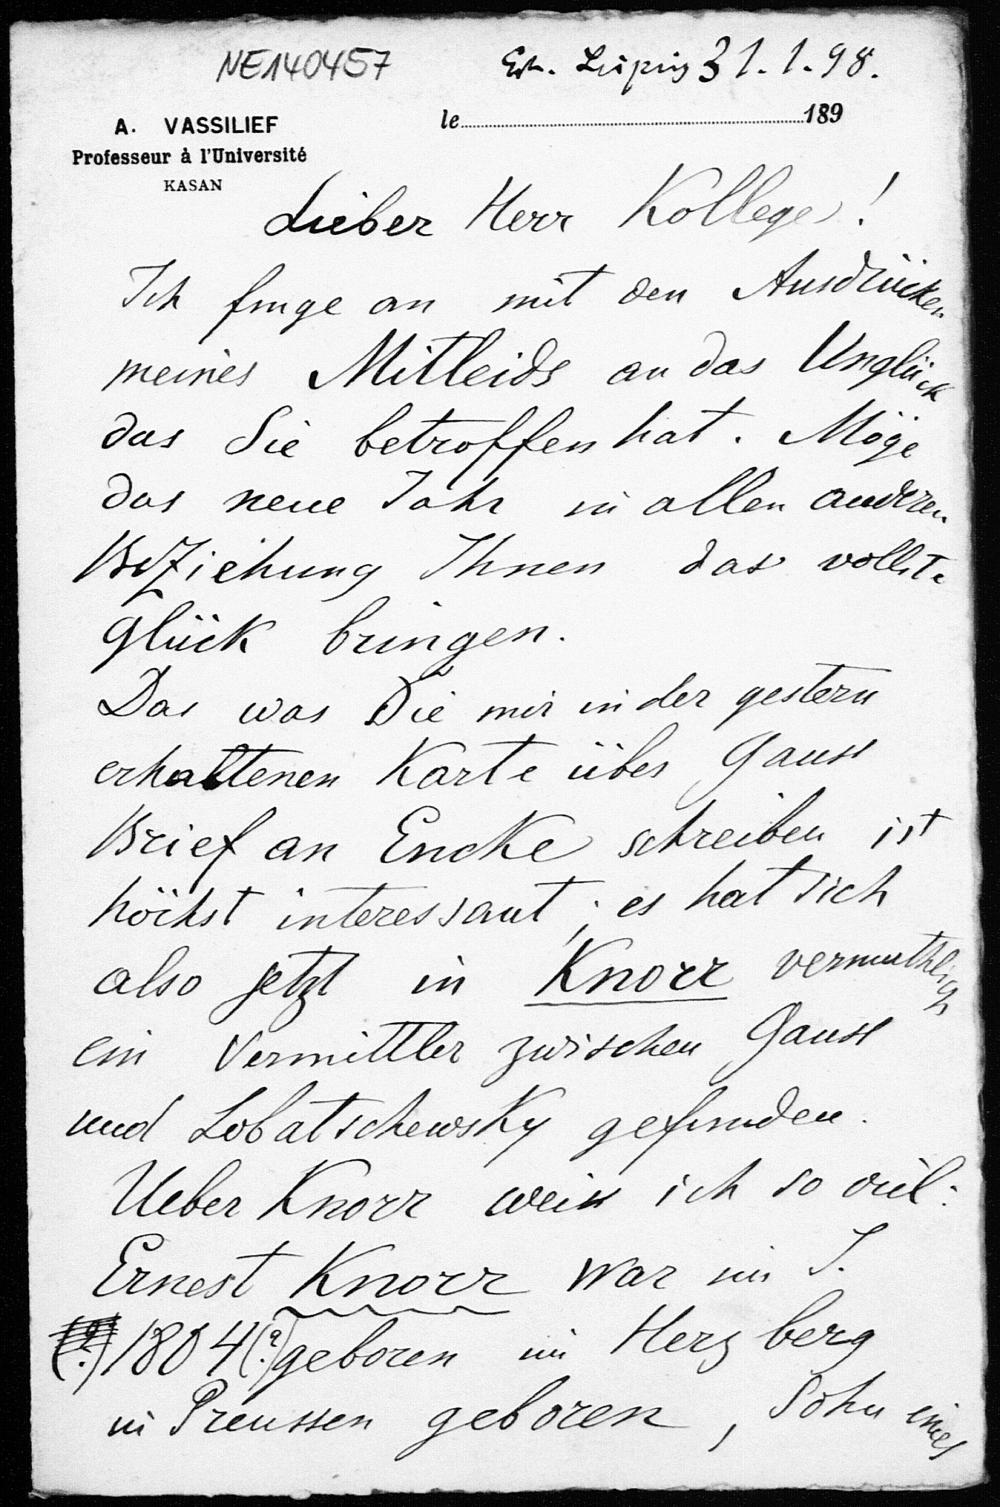 NE140457
Erh. Leipzig 31.1.98.
A. VASSILIEF
Professeur à l'Université
KASAN
le 189
Lieber Herr Kollege!
Ich fange an mit den Ausdrücken
meines Mitleids an das Unglück
das Sie betroffen hat. Möge
das neue Jahr in allen anderen
Beziehung Ihnen das vollste
Glück bringen.
Das was Sie mir in der gestern
erhaltenen Karte über Gauss
Brief an Encke schreiben ist
höchst interessant; es hat sich
also jetzt in Knorr vermuthlich
ein Vermittler zwischen Gauss
und Lobatschewsky gefunden.
Ueber Knorr weiss ich so viel:
Ernest Knorr war im J.
(?) 1804(?) geboren im Herzberg
in Preussen geboren, Sohn eines